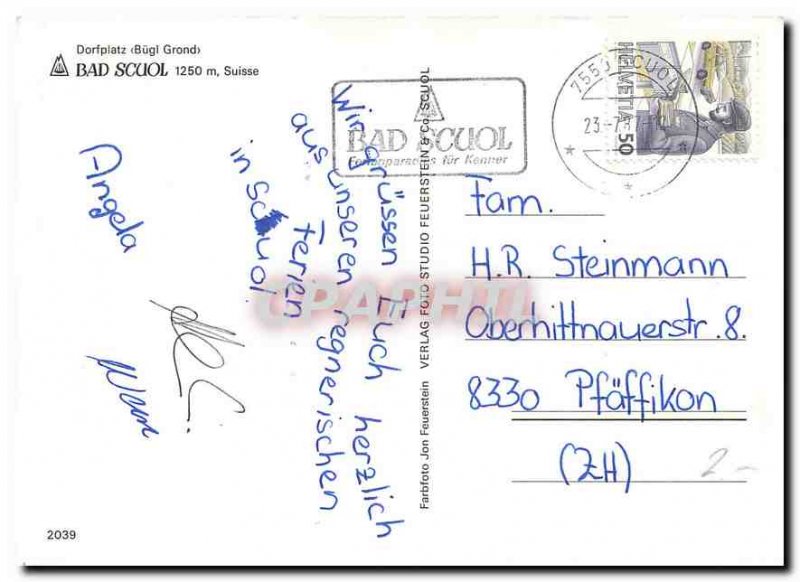 Dorfplatz ‹Bügl Grond›
BAD SCUOL 1250 m, Suisse
Wir grüssen Euch herzlich
aus unseren regnerischen
Ferien
in Scuol.
Angela
2039
Farbfoto Jon Feuerstein VERLAG FOTO STUDIO FEUERSTEIN & Co. SCUOL
BAD SCUOL
Ferienparadies für Kenner
7550 SCUOL
23.-7.
HELVETIA 50
Fam.
H.R. Steinmann
Oberhittnauerstr. 8.
8330 Pfäffikon
(ZH)
2.-
CPAPHIL